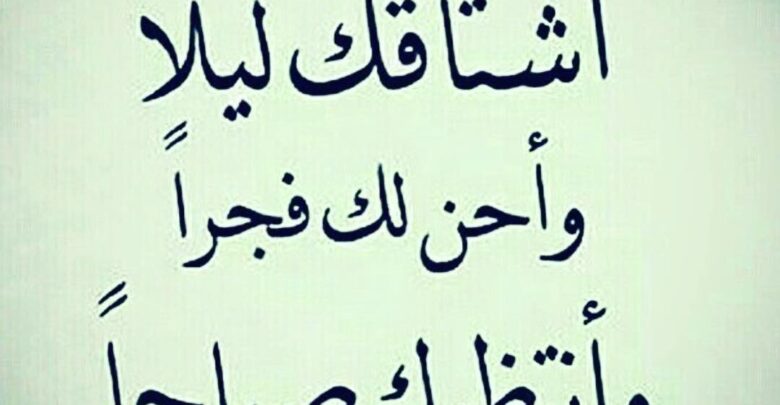 اشتاقك ليلا
وأحن لك فجراً
وأنتظرك صباحاً